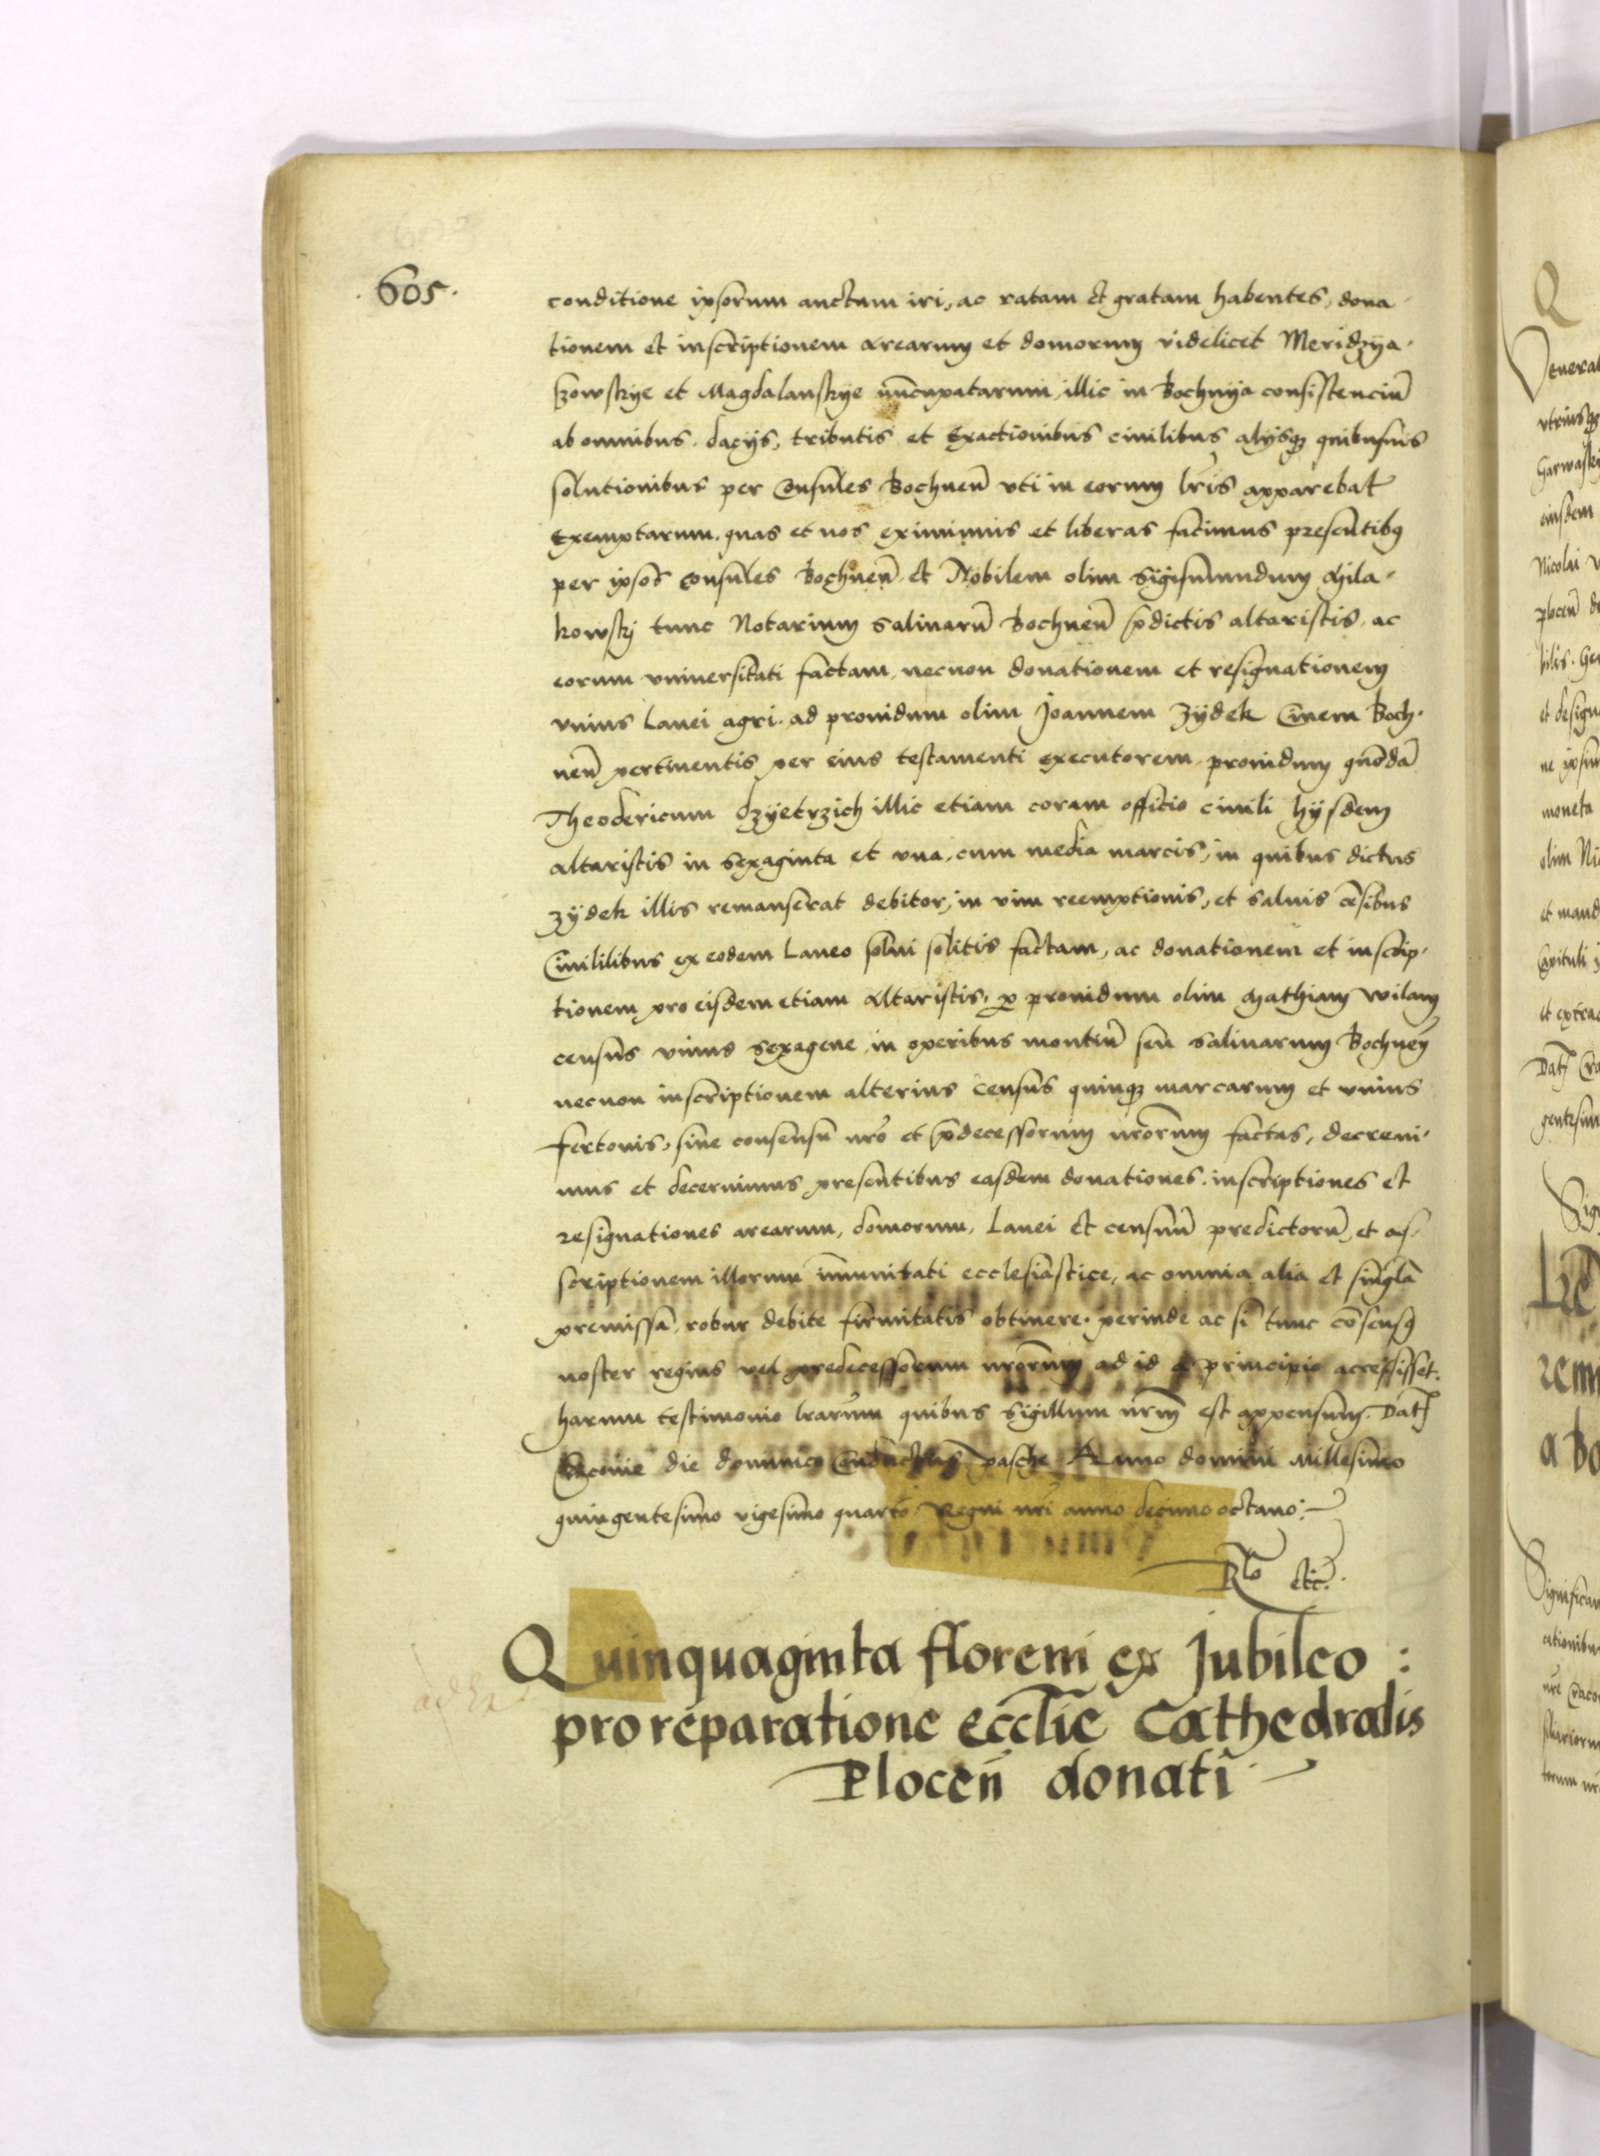 605.
conditione ipsorum auctum iri, ac ratam et gratam habentes, dona
tionem et inscriptionem arearum et domorum videlicet Meridzya
szowskye et Magdalanskye nuncupatarum, illic in Bochnya consistenciū
ab omnibus dacijs, tributis et exactionibus ciuilibus alijsq; quibusuis
solutionibus per Consules Bochneñ vti in eorum lr̄is apparebat
exemptarum, quas et nos eximimus et liberas facimus presentibꝰ
per ipsos Consules Bochneñ et Nobilem olim Sigismundum Mila
kowskj tunc Notarium Salinarū Bochneñ p̄dictis altaristis, ac
eorum vniuersitati factam, necnon donationem et resignationem
vnius lanei agri ad prouidum olim Joannem Zydek Ciuem Boch
neñ pertinentis per eius testamenti executorem prouidum quōdā
Theodericum Dzyetrzich illic etiam coram officio ciuili hijsdem
altaristis in sexaginta et vna cum media marcis, in quibus dictus
Zydek illis remanserat debitor, in vim reemptionis, et saluis cēsibus
Ciuililibus ex eodem Laneo solui solitis factam, ac donationem et inscrip
tionem pro eisdem etiam altaristis, ꝑ prouidum olim Mathiam Wilam
census vnius sexagene in operibus montiū seu salinarum Bochneñ
necnon inscriptionem alterius census quinq; marcarum et vnius
fertonis, sine consensu nr̄o et p̄decessorum nr̄orum factas, decreui
mus et decernimus presentibus easdem donationes, inscriptiones et
resignationes arearum, domorum, Lanei et censuū predictorū, et as
scriptionem illorum īmunitati ecclesiastice, ac omnia alia et singla
premissa, robur debite firmitatis obtinere, perinde ac si tunc cōsensꝰ
noster regius vel predecessorum nr̄orum ad id a principio accessisset.
harum testimonio lrarum quibus Sigillum nr̄m est appensum. Dat̄
Cracouie die dominico Conductus pasche Anno domini Millesimo
quingentesimo vigesimo quarto Regni nr̄i anno decimo octauo:
Rlō etc.
Quinquaginta floreni ex Jubileo :
pro reparatione eccl̄ie Cathedralis
Ploceñ donati